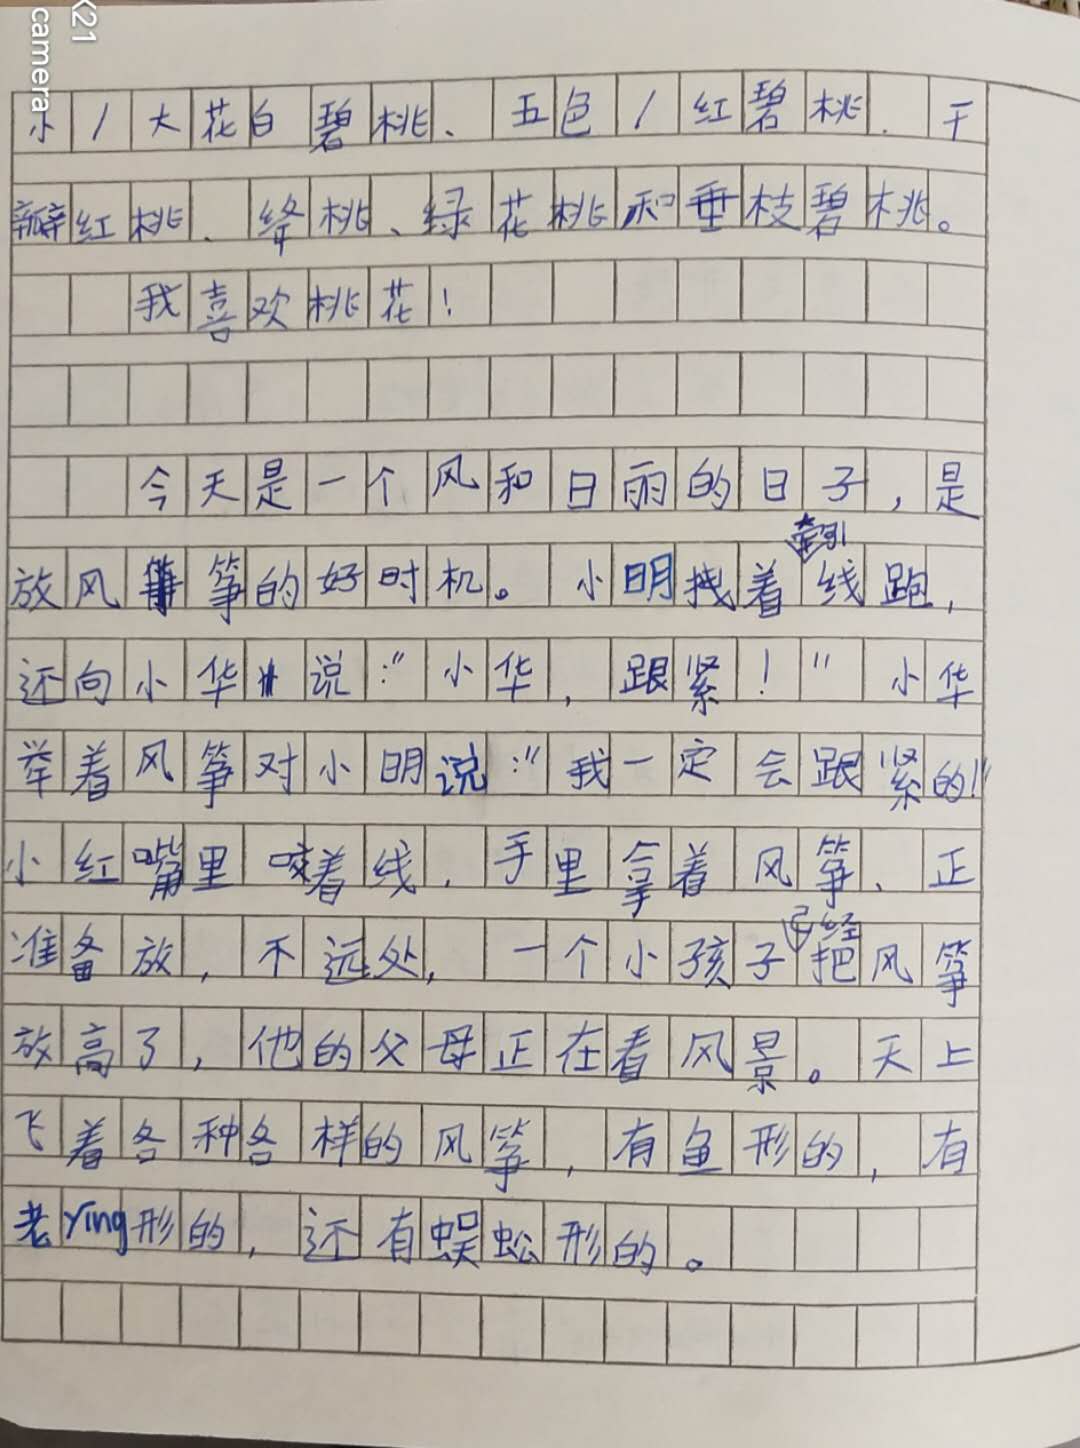 X21
camera
小/大花白碧桃、五色/红碧桃、千
瓣红桃、绛桃、绿花桃和垂枝碧桃。
我喜欢桃花！
今天是一个风和日丽的日子，是
放风筝的好时机。小明拽着牵引线跑，
还向小华说："小华，跟紧！"小华
举着风筝对小明说："我一定会跟紧的！"
小红嘴里咬着线，手里拿着风筝、正
准备放，不远处，一个小孩子已经把风筝
放高了，他的父母正在看风景。天上
飞着各种各样的风筝，有鱼形的，有
老Ying形的，还有蜈蚣形的。